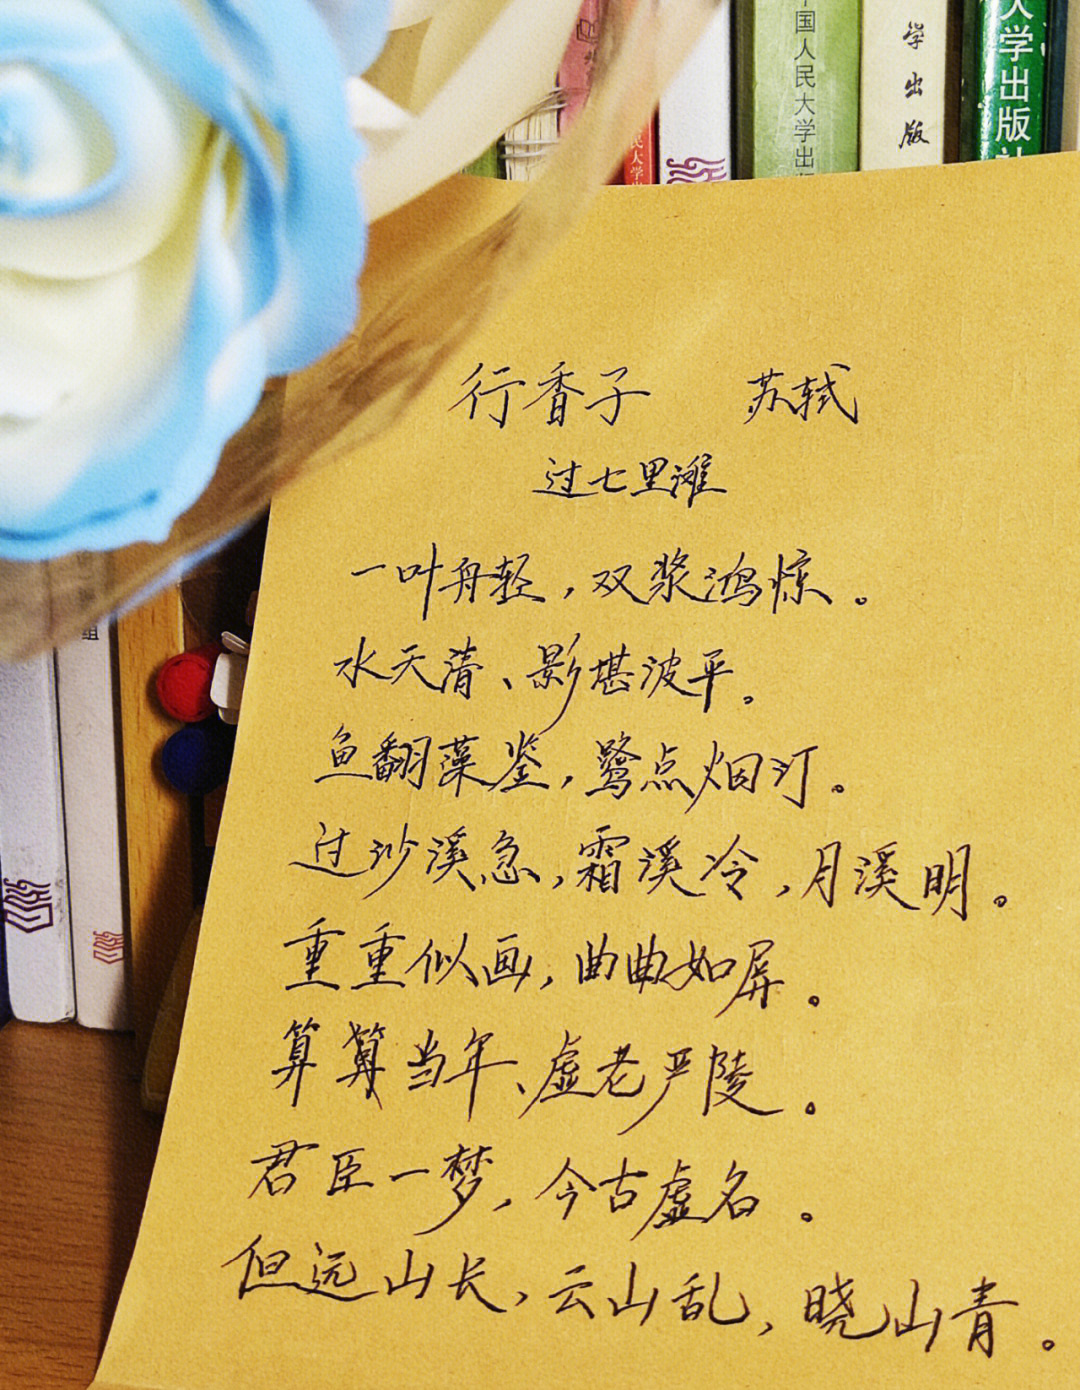 国人民大学出版
学出版
大学出版社
民大学出
组
行香子 苏轼
过七里滩
一叶舟轻，双浆鸿惊。
水天清、影堪波平。
鱼翻藻鉴，鹭点烟汀。
过沙溪急，霜溪冷，月溪明。
重重似画，曲曲如屏。
算算当年、虚老严陵。
君臣一梦，今古虚名。
但远山长，云山乱，晓山青。